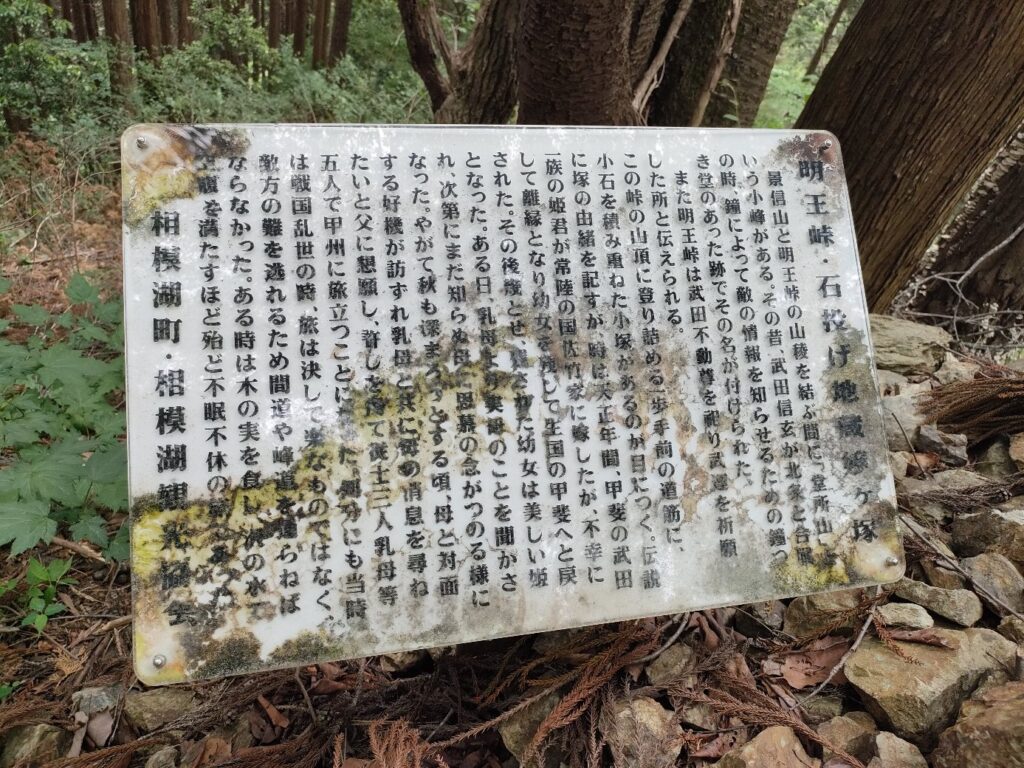 明王峠・石投げ地蔵嬢ヶ塚
景信山と明王峠の山稜を結ぶ間に、堂所山と
いう小峰がある。その昔、武田信玄が北条と合戦
の時、鐘によって敵の情報を知らせるための鐘つ
き堂のあった跡でその名が付けられた。
また明王峠は武田不動尊を祀り武運を祈願
した所と伝えられる。
この峠の山頂に登り詰める一歩手前の道筋に、
小石を積み重ねた小塚があるのが目につく。伝説
に塚の由緒を記すが、時は天正年間、甲斐の武田
一族の姫君が常陸の国佐竹家に嫁したが、不幸に
して離縁となり幼女を残して生国の甲斐へと戻
された。その後幾とせ、残された幼女は美しい姫
となった。ある日、乳母より実母のことを聞かさ
れ、次第にまだ知らぬ母に思慕の念がつのる様に
なった。やがて秋も深まろうとする頃、母と対面
する好機が訪ずれ乳母と共に母の消息を尋ね
たいと父に懇願し、許しを得て従士三人乳母等
五人で甲州に旅立つことに した。 にも当時
は戦国乱世の時、旅は決して楽なものではなく、
敵方の難を逃れるため間道や峰道を通らねば
ならなかった。ある時は木の実を食し、 の水で
空腹を満たすほど殆ど不眠不休の
相模湖町・相模湖観光協会